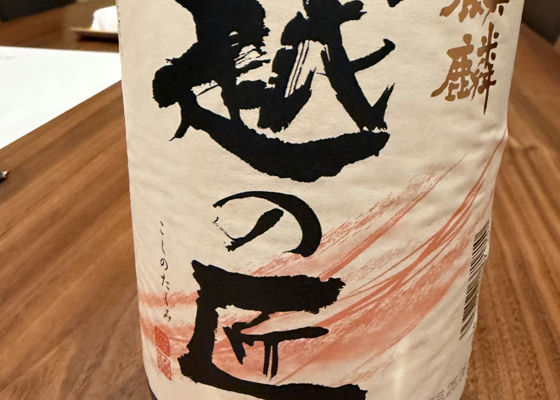 麒麟
越の匠
こしのたくみ